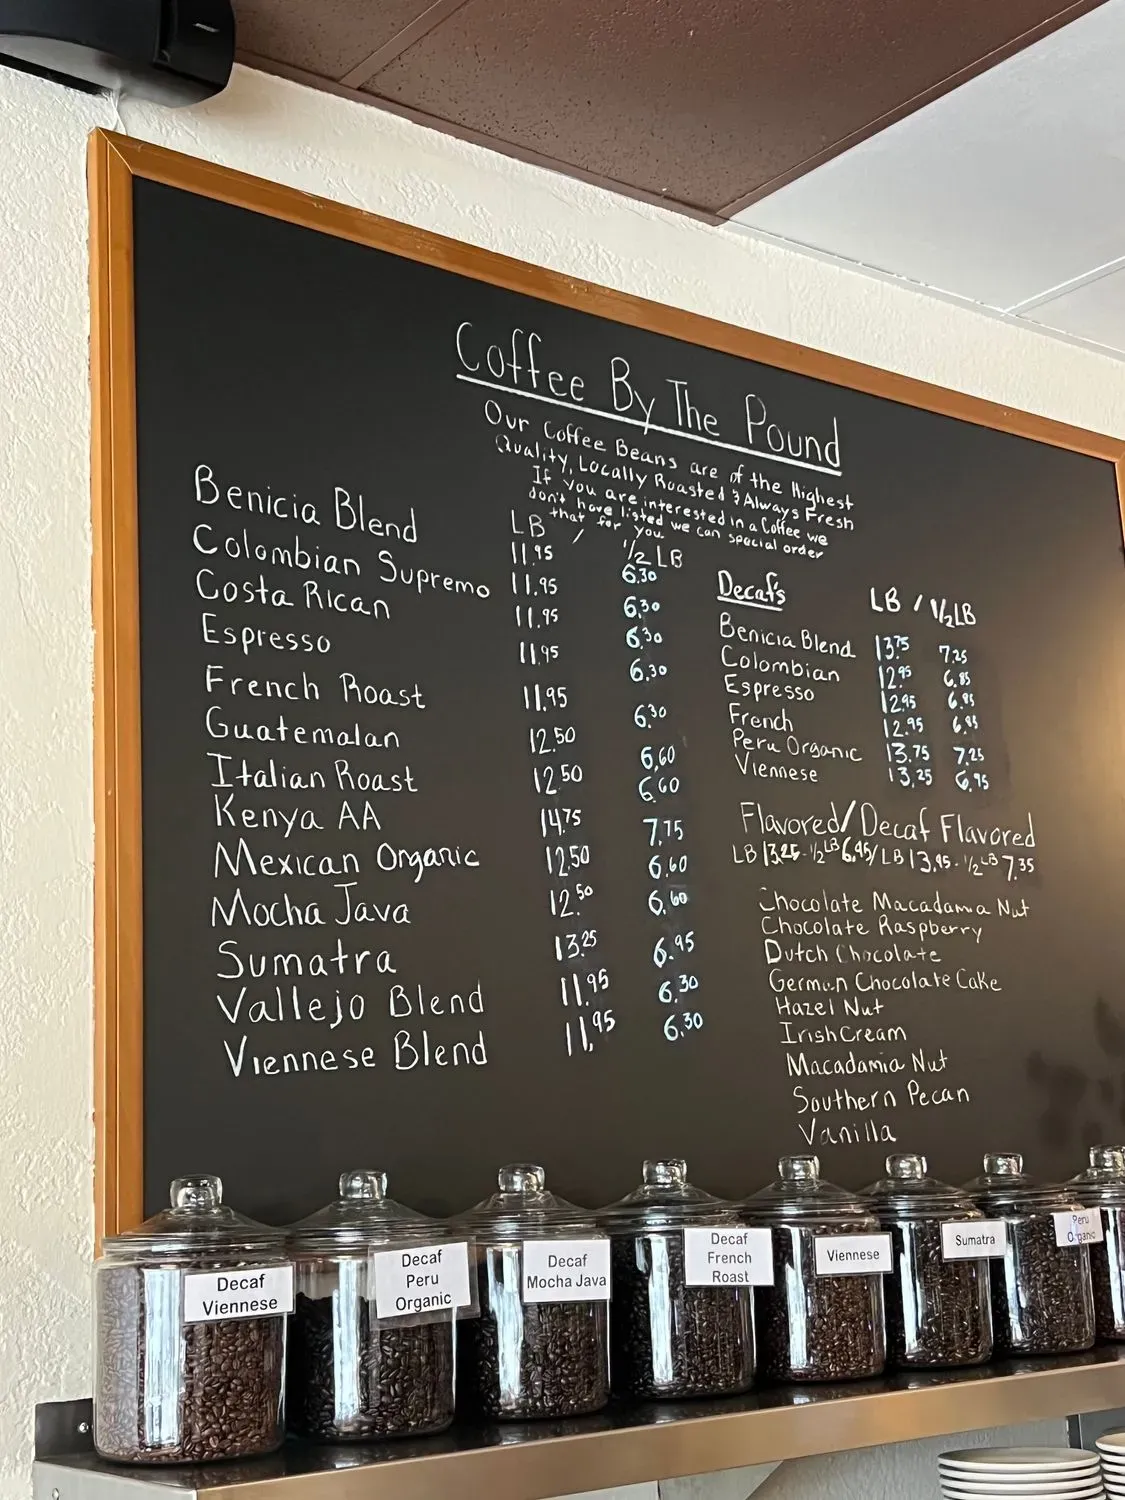 Coffee By The Pound
Our Coffee Beans are of the Highest
Quality, Locally Roasted & Always Fresh
If You are interested in a Coffee we
don't have listed we can special order
that for you
LB / 1/2 LB
Benicia Blend 11.95 6.30
Colombian Supremo 11.95 6.30
Costa Rican 11.95 6.30
Espresso 11.95 6.30
French Roast 11.95 6.30
Guatemalan 12.50 6.60
Italian Roast 12.50 6.60
Kenya AA 14.75 7.75
Mexican Organic 12.50 6.60
Mocha Java 12.50 6.60
Sumatra 13.25 6.95
Vallejo Blend 11.95 6.30
Viennese Blend 11.95 6.30
Decaf's LB / 1/2 LB
Benicia Blend 13.75 7.25
Colombian 12.95 6.85
Espresso 12.95 6.85
French 12.95 6.85
Peru Organic 13.75 7.25
Viennese 13.25 6.95
Flavored/Decaf Flavored
LB 13.25 - 1/2 LB 6.95/LB 13.95 - 1/2 LB 7.35
Chocolate Macadamia Nut
Chocolate Raspberry
Dutch Chocolate
German Chocolate Cake
Hazel Nut
Irish Cream
Macadamia Nut
Southern Pecan
Vanilla
Decaf
Viennese
Decaf
Peru
Organic
Decaf
Mocha Java
Decaf
French
Roast
Viennese
Sumatra
Peru
Organic